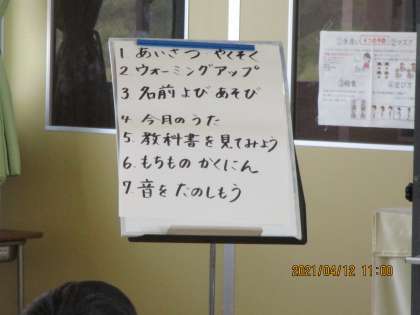 1. あいさつ やくそく
2 ウォーミングアップ
3 名前よび あそび
4 今月のうた
5. 教科書を見てみよう
6. もちもの かくにん
7. 音を たのしもう
2021/04/12 11:00